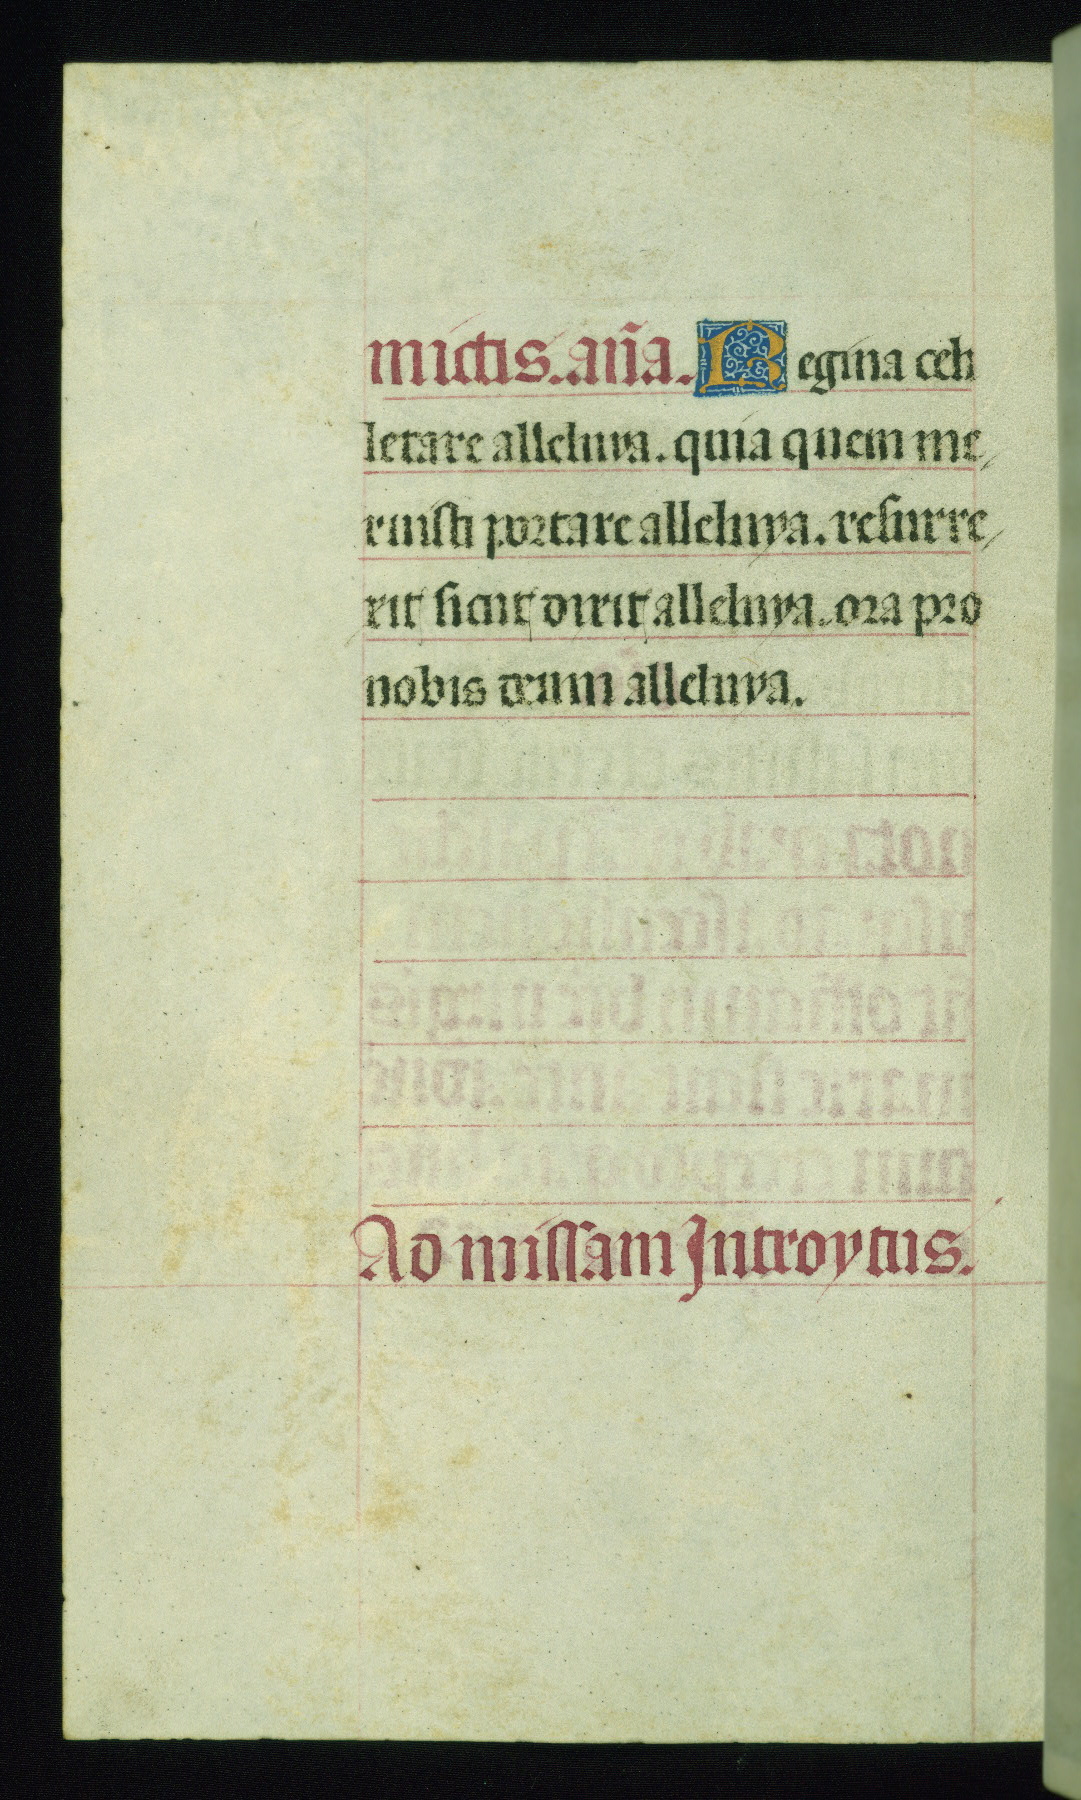 mictis. an̄a. Regina celi
letare alleluya. quia quem me,
ruisti portare alleluya. resurre,
xit sicut dixit alleluya. ora pro
nobis deum alleluya.
Ad missam Introytus.